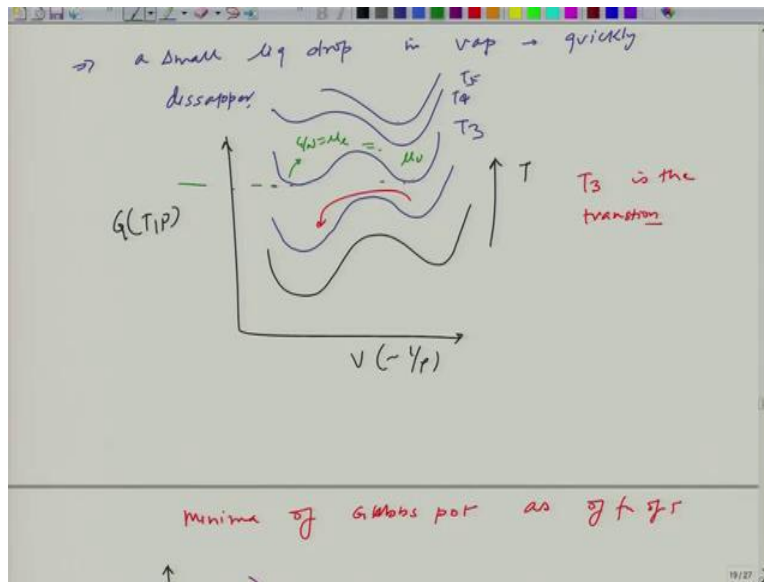 ⇒ a small liq drop in vap → quickly
dissapper.
T5
T4
T3
= μl =
μv
T
T3 is the
transtion
G(T,P)
V (~ 1/ρ)
minima of Gibbs pot as of
19/27